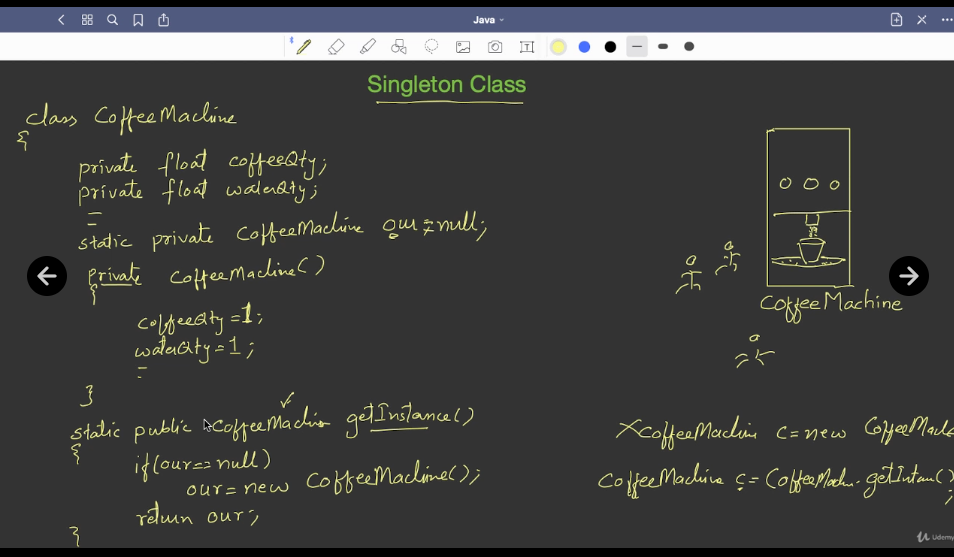 Java
Singleton Class
class CoffeeMachine
{
private float coffeeQty;
private float waterQty;
static private CoffeeMachine our=null;
private CoffeeMachine()
{
coffeeQty=1;
waterQty=1;
}
static public CoffeeMachine getInstance()
{
if(our==null)
our=new CoffeeMachine();
return our;
}
CoffeeMachine
XCoffeeMachine c=new CoffeeMac
CoffeeMachine c=CoffeeMachn.getIntan()
;
Udemy